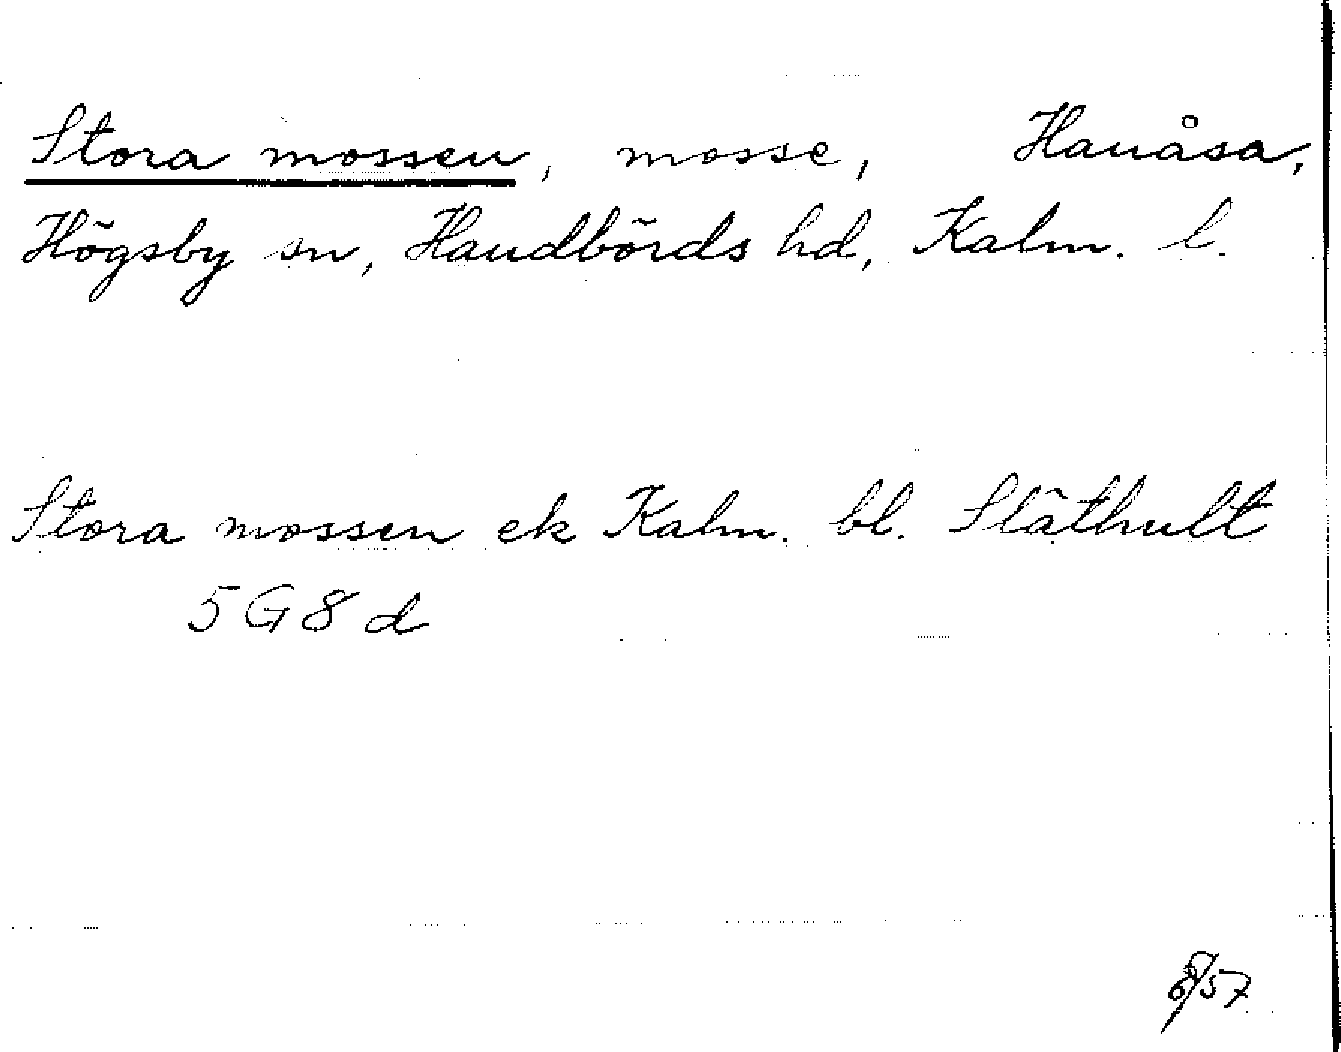 Stora mossen, mosse, Hanåsa,
Högsby sn, Handbörds hd, Kalm. l.
Stora mossen ek Kalm. bl. Släthult
5G8d
8/57